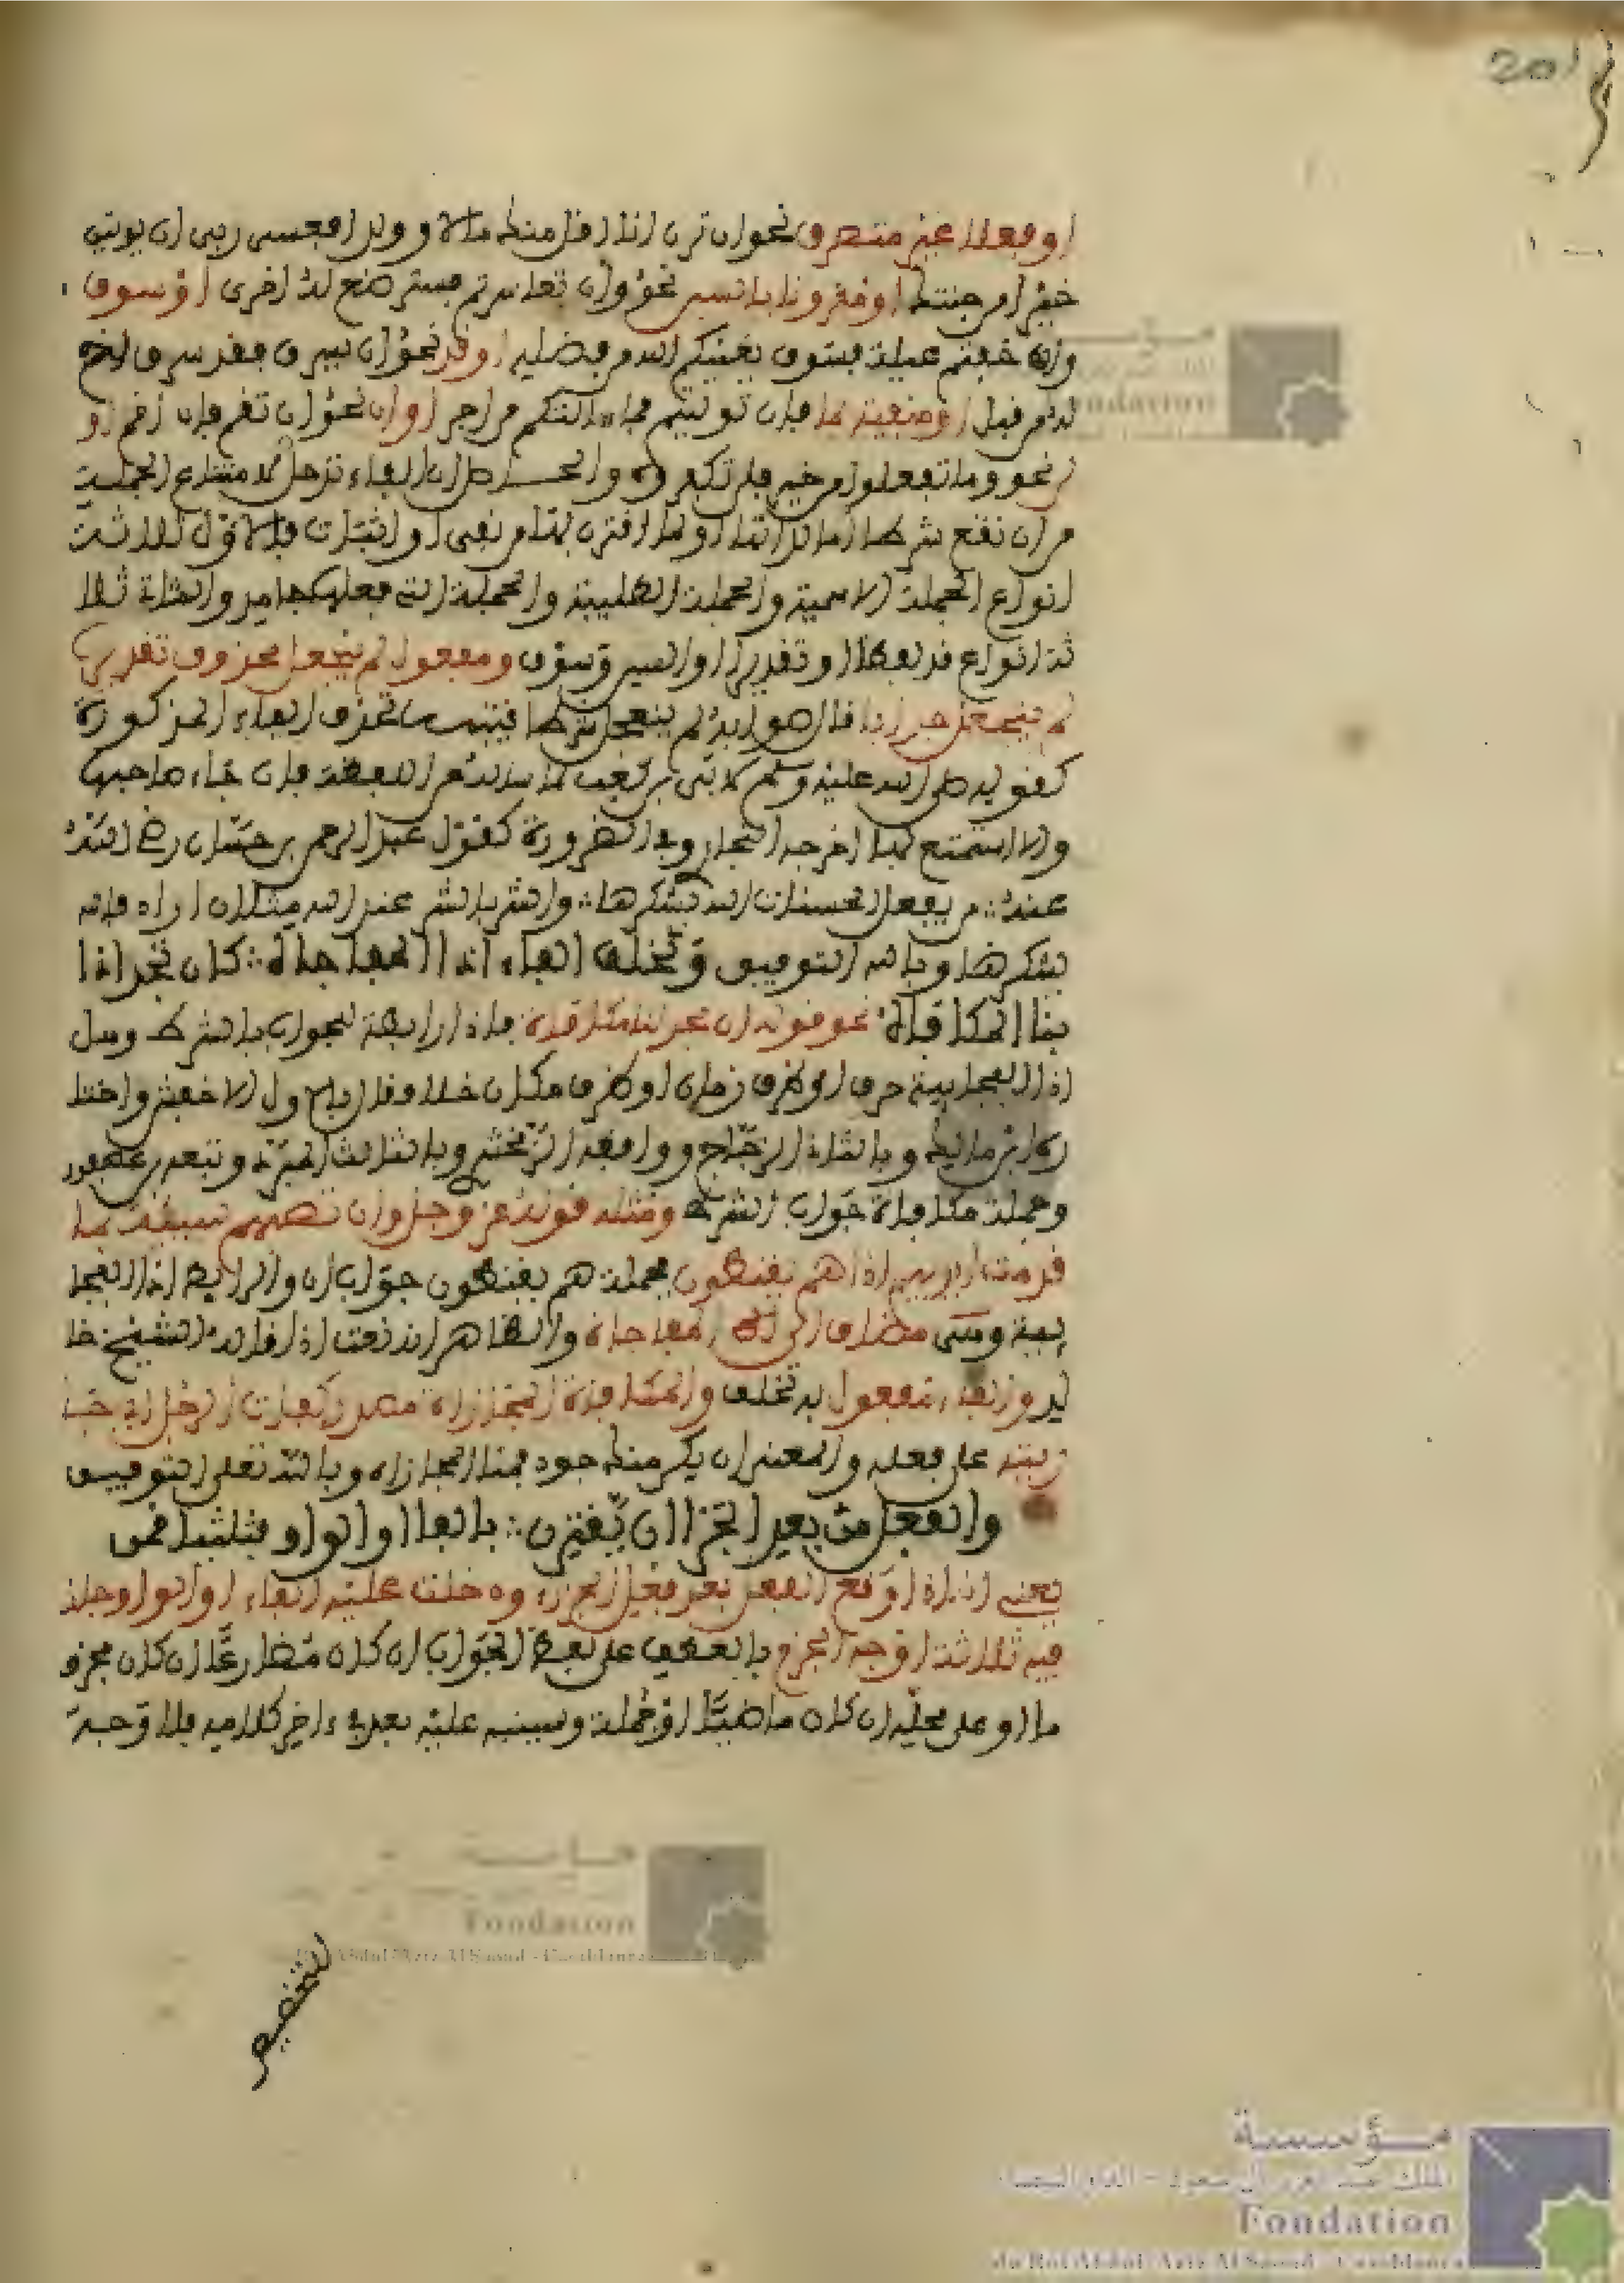 201
او فعلا غير متصرف نحو ان ترن انا اقل منك مالا وولدا فعسى ربي ان يوتين
خيرا من جنتك او مقرونا بالسين نحو وان تعاسرتم فسترضع له اخرى او سوف
وان خفتم عيلة فسوف يغنيكم الله من فضله او قد نحو ان يسرق فقد سرق اخ
له من قبل او منفية بما فان توليتم فما سالتكم من اجر او ان نحو ان تقم فان اقم او
لن نحو وما تفعلوا من خير فلن تكفروه والحاصل ان الفاء تدخل لامتناع الجملة
من ان تقع شرطا اما لذاتها او لما اقترن بها من نفي او اثبات فالاول ثلاثة
انواع الجملة الاسمية والجملة الطلبية والجملة التي فعلها جامد والثانى ثلا
ثة انواع قد لفظا او تقديرا او السين وسوف ومفعول لم ينجعل محذوف تقديره
لم ينجعل جوابا قال هو لابد لم ينجعل شرطا تحذف الفاء المذكورة
كقوله صلى الله عليه وسلم لابي بن كعب لما ساله عن اللقطة فان جاء صاحبها
والا استمتع بها اخرجه البخاري وفي الضرورة كقول عبد الرحمن بن حسان رضي الله
عنه من يفعل الحسنات الله يشكرها والشر بالشر عند الله مثلان اراه فالله
يشكرها وبالله التوفيق وتخلف الفاء اذا المفاجاة كان تجد اذا
لنا مكافاة نحو قوله ان تجد اذا لنا مكافاة فاذا رابطة للجواب بالشرط وهل
اذا الفجايية حرف او ظرف زمان او ظرف مكان خلاف قال بالاول الاخفش واختا
ره ابن مالك وبالثاني الزجاج ووافقه الزمخشري وبالثالث المبرد وتبعه ابن عصفور
وجملة مكافاة جواب الشرط ومثله قوله عز وجل وان تصبهم سيئة بما
قدمت ايديهم اذا هم يقنطون فجملة هم يقنطون جواب ان والرابط اذا الفجا
يية ومتى مضاف الى المفاجاة والظاهر انه نعت اذا قاله الشيخ خا
لد والفاء مفعول به تخلف والمكافاة المجازاة مصدر كفات الرجل اي جا
زيته على فعله والمعنى ان يكن منك جود فمنا المجازاة وبالله تعلى التوفيق
والفعل من بعد الجزا ان يقترن بالفا او الواو بتثليث قمن
يعني انه اذا وقع الفعل بعد فعل الجزاء ودخلت عليه الفاء او الواو جاز
فيه ثلاثة اوجه الجزم بالعطف على لفظ الجواب ان كان مضارعا ان كان مجزو
ما او على محله ان كان ماضيا او جملة وسينبه عليه بعد في ءاخر كلامه فالاوجه